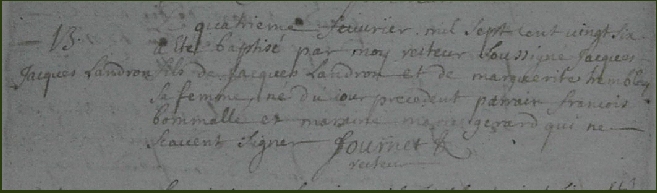 quatrieme feuvrier mil sept cent vingt six
13. a ete baptise par moy recteur soussigne Jacques
Jacques Landron fils de Jacques Landron et de marguerite
sa femme, ne du iour precedent parrain francois
bommalle et maraine gerard qui ne
scauent signer fournet
recteur